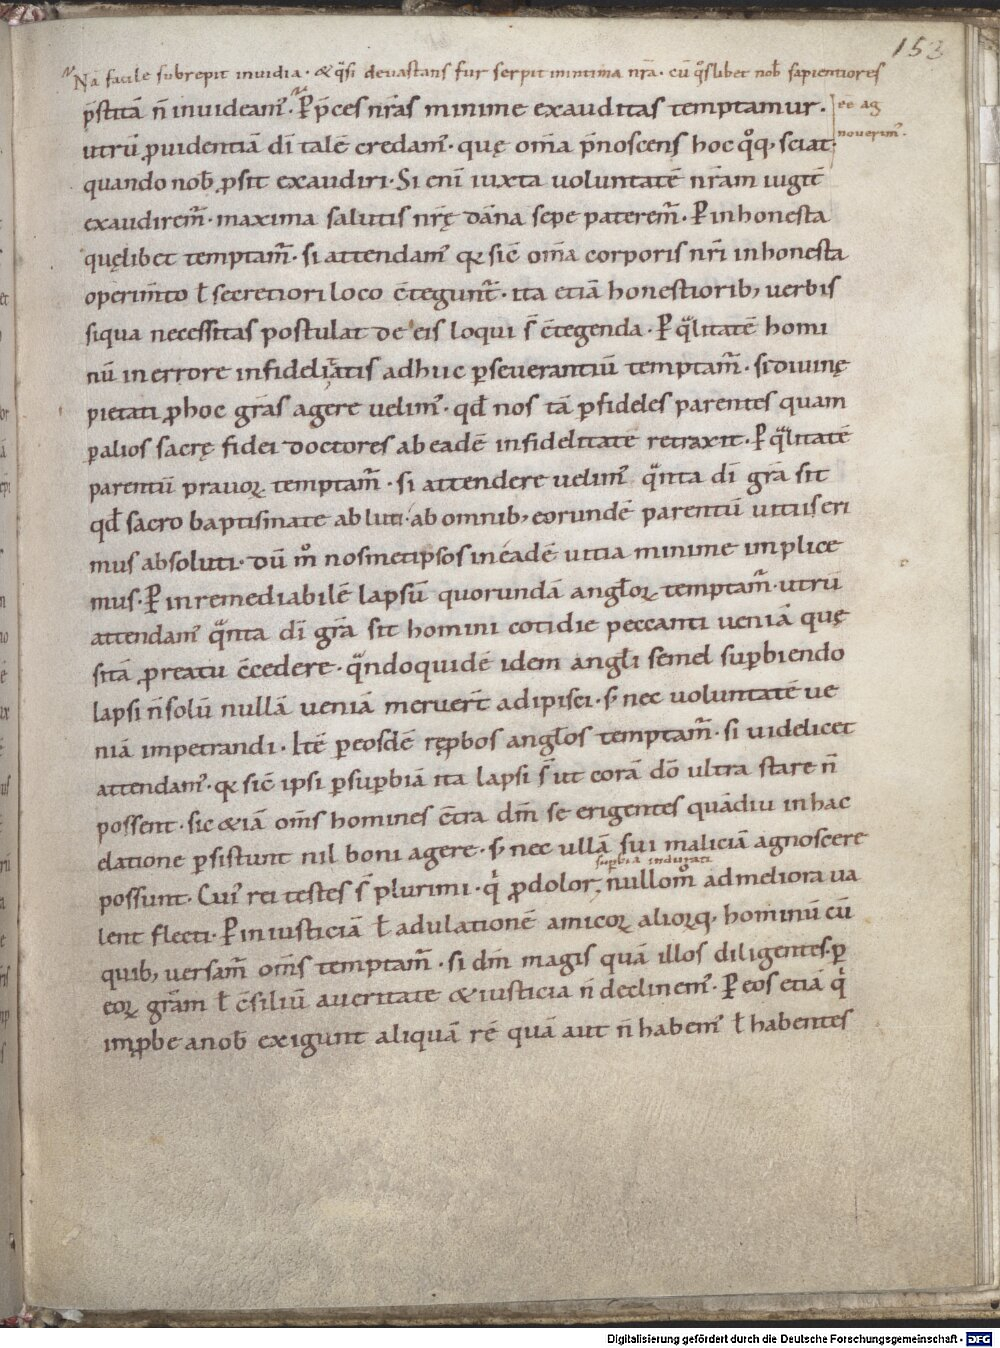 153
Nā facile subrepit inuidia · & q̄si deuastans fur serpit in intima nr̄a · cū q̄slibet nob̄ sapientiores
ee ag
nouerim᷒ ·
p̄stitā n̄ inuideam᷒ · P p̄ces nr̄as minime exauditas temptamur ·
utrū ꝓuidentiā dī talē credam᷒ · quę om̄a p̄noscens hoc qͦq, sciat ·
quando nob̄ ꝓsit exaudiri · Si enī iuxta uoluntatē nr̄am iugit̄
exaudirem̄ · maxima salutis nr̄ę dāna sepe paterem̄ · P inhonesta
quęlibet temptam̄ · si attendam᷒ qꝛ sic̄ om̄a corporis nr̄i inhonesta
operim̄to ł secretiori loco c̄tegunt̄ · ita etiā honestiorib, uerbis
siqua necessitas postulat de eis loqui s̄ c̄tegenda · P q̄litatē homi
nū in errore infidelitatis adhuc ꝑseuerantiū temptam̄ · si diuinę
pietati ꝓ hoc grās agere uelim᷒ · qđ nos tā ꝑ fideles parentes quam
ꝑ alios sacrę fidei doctores ab eadē infidelitate retraxit · P q̄litatē
parentū prauoꝝ temptam̄ · si attendere uelim᷒ q̄nta dī grā sit
qđ sacro baptismate abluti · ab omnib, eorundē parentū uitiis eri
mus absoluti · dū m̊ nosmetipsos in eadē uitia minime implice
mus · P inremediabilē lapsū quorundā angłoꝝ temptam̄ · utrū
attendam᷒ q̄nta dī grā sit homini cotidie peccanti ueniā quę
sitā ꝓ reatu c̄cedere · q̄ndoquidē idem angłi semel supbiendo
lapsi n̄ solū nullā ueniā meruer̄t adipisci · s; nec uoluntatē ue
niā impetrandi · Itē ꝑ eosdē rep̄bos angłos temptam̄ · si uidelicet
attendam᷒ · qꝛ sic̄ ipsi ꝑ supbiā ita lapsi s̄ ut corā dō ultra stare n̄
possent · sic & iā om̄s homines c̄tra dm̄ se erigentes quādiu in hac
elatione ꝑsistunt nil boni agere · s; nec ullā sui maliciā agnoscere
supbia indurati
possunt · Cui᷒ rei testes s̄ plurimi · q̇ ꝓdolor, nullom̊ ad meliora ua
lent flecti · P iniusticiā ł adulationē amicoꝝ aliorꝝq, hominū cū
quib, uersam̄ om̄s temptam̄ · si dm̄ magis quā illos diligentes · ꝑ
eoꝝ grām ł c̄siliū a ueritate & iusticia n̄ declinem᷒ · P eos etiā q̇
imꝓbe a nob̄ exigunt aliquā rē quā aut n̄ habem᷒ ł habentes
Digitalisierung gefördert durch die Deutsche Forschungsgemeinschaft - DFG